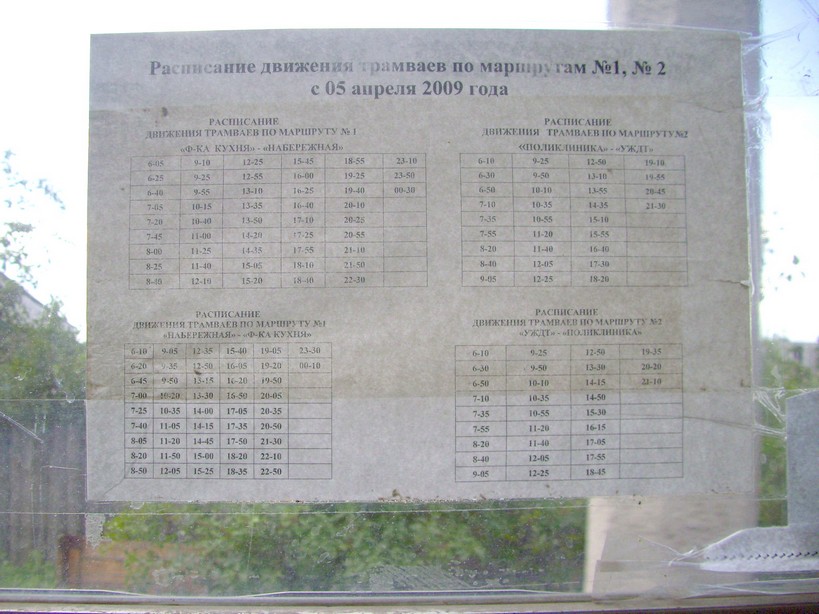 Расписание движения трамваев по маршрутам №1, № 2
с 05 апреля 2009 года
РАСПИСАНИЕ
ДВИЖЕНИЯ ТРАМВАЕВ ПО МАРШРУТУ № 1
«Ф-КА КУХНЯ» - «НАБЕРЕЖНАЯ»
6-05 9-10 12-25 15-45 18-55 23-10
6-25 9-25 12-55 16-00 19-25 23-50
6-40 9-55 13-10 16-25 19-40 00-30
7-05 10-15 13-35 16-40 20-10
7-20 10-40 13-50 17-10 20-25
7-45 11-00 14-20 17-25 20-55
8-00 11-25 14-35 17-55 21-10
8-25 11-40 15-05 18-10 21-50
8-40 12-10 15-20 18-40 22-30
РАСПИСАНИЕ
ДВИЖЕНИЯ ТРАМВАЕВ ПО МАРШРУТУ №2
«ПОЛИКЛИНИКА» - «УЖДТ»
6-10 9-25 12-50 19-10
6-30 9-50 13-10 19-55
6-50 10-10 13-55 20-45
7-10 10-35 14-35 21-30
7-35 10-55 15-10
7-55 11-20 15-55
8-20 11-40 16-40
8-40 12-05 17-30
9-05 12-25 18-20
РАСПИСАНИЕ
ДВИЖЕНИЯ ТРАМВАЕВ ПО МАРШРУТУ №1
«НАБЕРЕЖНАЯ» - «Ф-КА КУХНЯ»
6-10 9-05 12-35 15-40 19-05 23-30
6-20 9-35 12-50 16-05 19-20 00-10
6-45 9-50 13-15 16-20 19-50
7-00 10-20 13-30 16-50 20-05
7-25 10-35 14-00 17-05 20-35
7-40 11-05 14-15 17-35 20-50
8-05 11-20 14-45 17-50 21-30
8-20 11-50 15-00 18-20 22-10
8-50 12-05 15-25 18-35 22-50
РАСПИСАНИЕ
ДВИЖЕНИЯ ТРАМВАЕВ ПО МАРШРУТУ №2
«УЖДТ» - «ПОЛИКЛИНИКА»
6-10 9-25 12-50 19-35
6-30 9-50 13-30 20-20
6-50 10-10 14-15 21-10
7-10 10-35 14-50
7-35 10-55 15-30
7-55 11-20 16-15
8-20 11-40 17-05
8-40 12-05 17-55
9-05 12-25 18-45